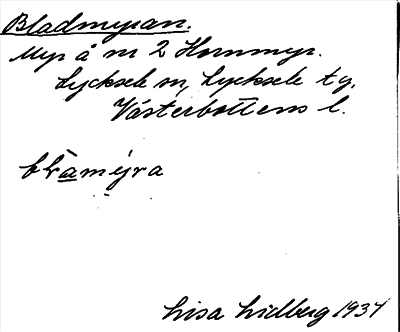 Bladmyran.
Myr å nr 2 Hornmyr.
Lycksele sn, Lycksele tg.
Västerbottens l.
blàmýra
Lisa Lidberg 1934